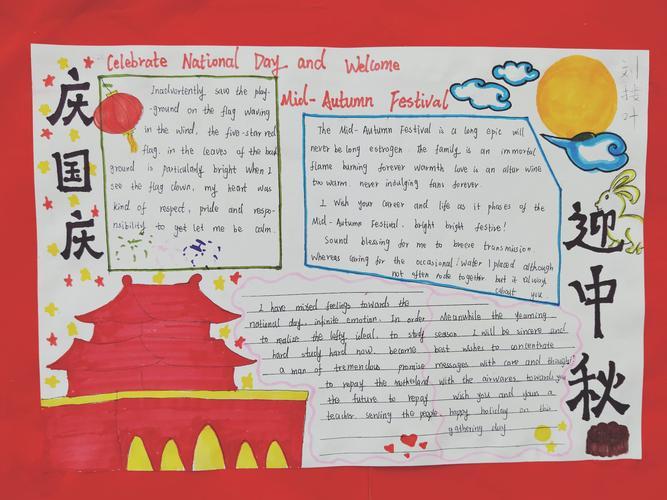 Celebrate National Day and Welcome
Mid-Autumn Festival
庆国庆
Inadvertently saw the play-
-ground on the flag waving
in the wind, the five-star red
flag. in the leaves of the back
ground is particularly bright when I
see the flag down, my heart was
kind of respect, pride and respo-
nsibility to get let me be calm.
The Mid-Autumn Festival is a long epic will
never be long estrogen. The family is an immortal
flame burning forever warmth love is an altar wine
too warm. never indulging fans forever.
I Wish your career and life as it phases of the
Mid-Autumn Festival. bright bright festive!
Sound blessing for me to breeze transmission.
Whereas caring for the occasional! Water I placed although
not often rode together but it always
about you
I have mixed feelings towards the
national day. infinite emotion. In order
to realize the lofty ideal, to study
hard study hard now. become
a man of tremendous promise
to repay the motherland
the future to repay
teacher. serving the people.
Meanwhile the yearning
season. I will be sincere and
best wishes to concentrate
messages with care and thoughts
with the airwaves towards you
wish you and your a
happy holiday on this
gathering day
迎中秋
刘
叶